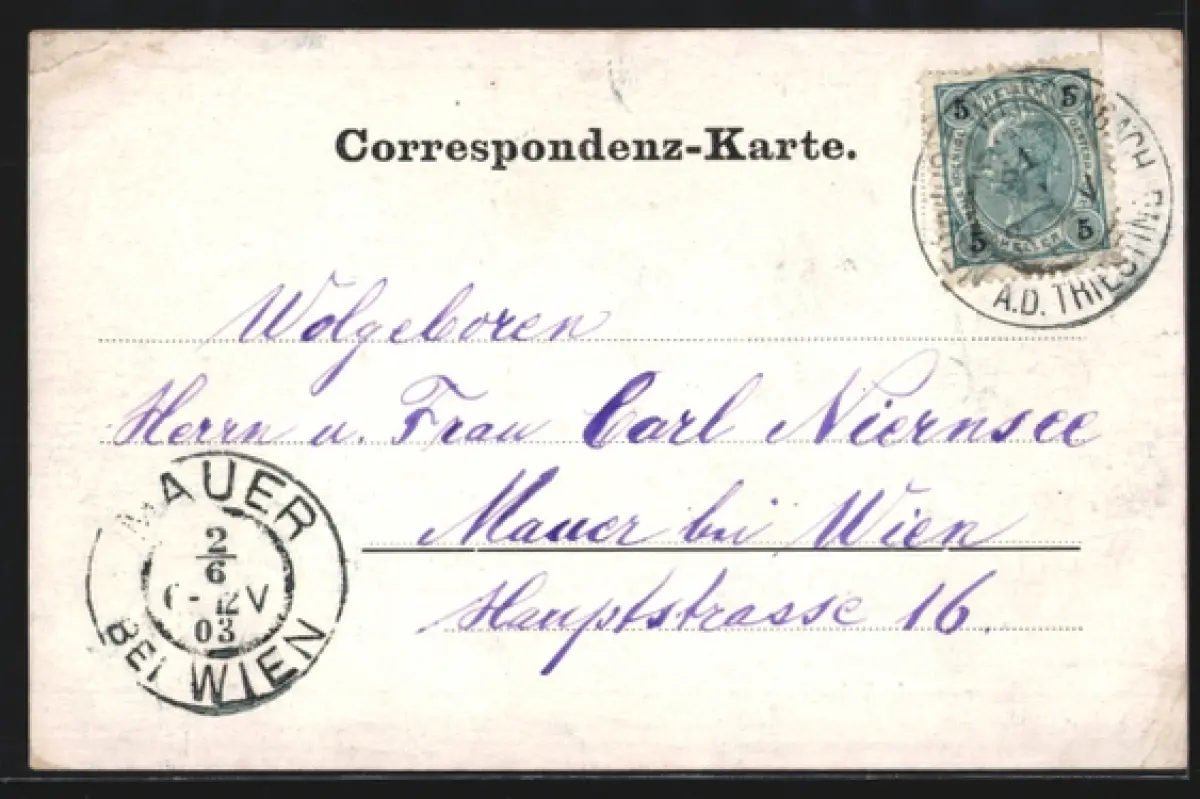 Correspondenz-Karte.
5 5
5 5
HELLER
A.D. TRIESTING
Wolgeboren
Herrn u. Frau Carl Niernsee
Mauer bei Wien
Hauptstrasse 16.
MAUER
2
6
03
BEI WIEN